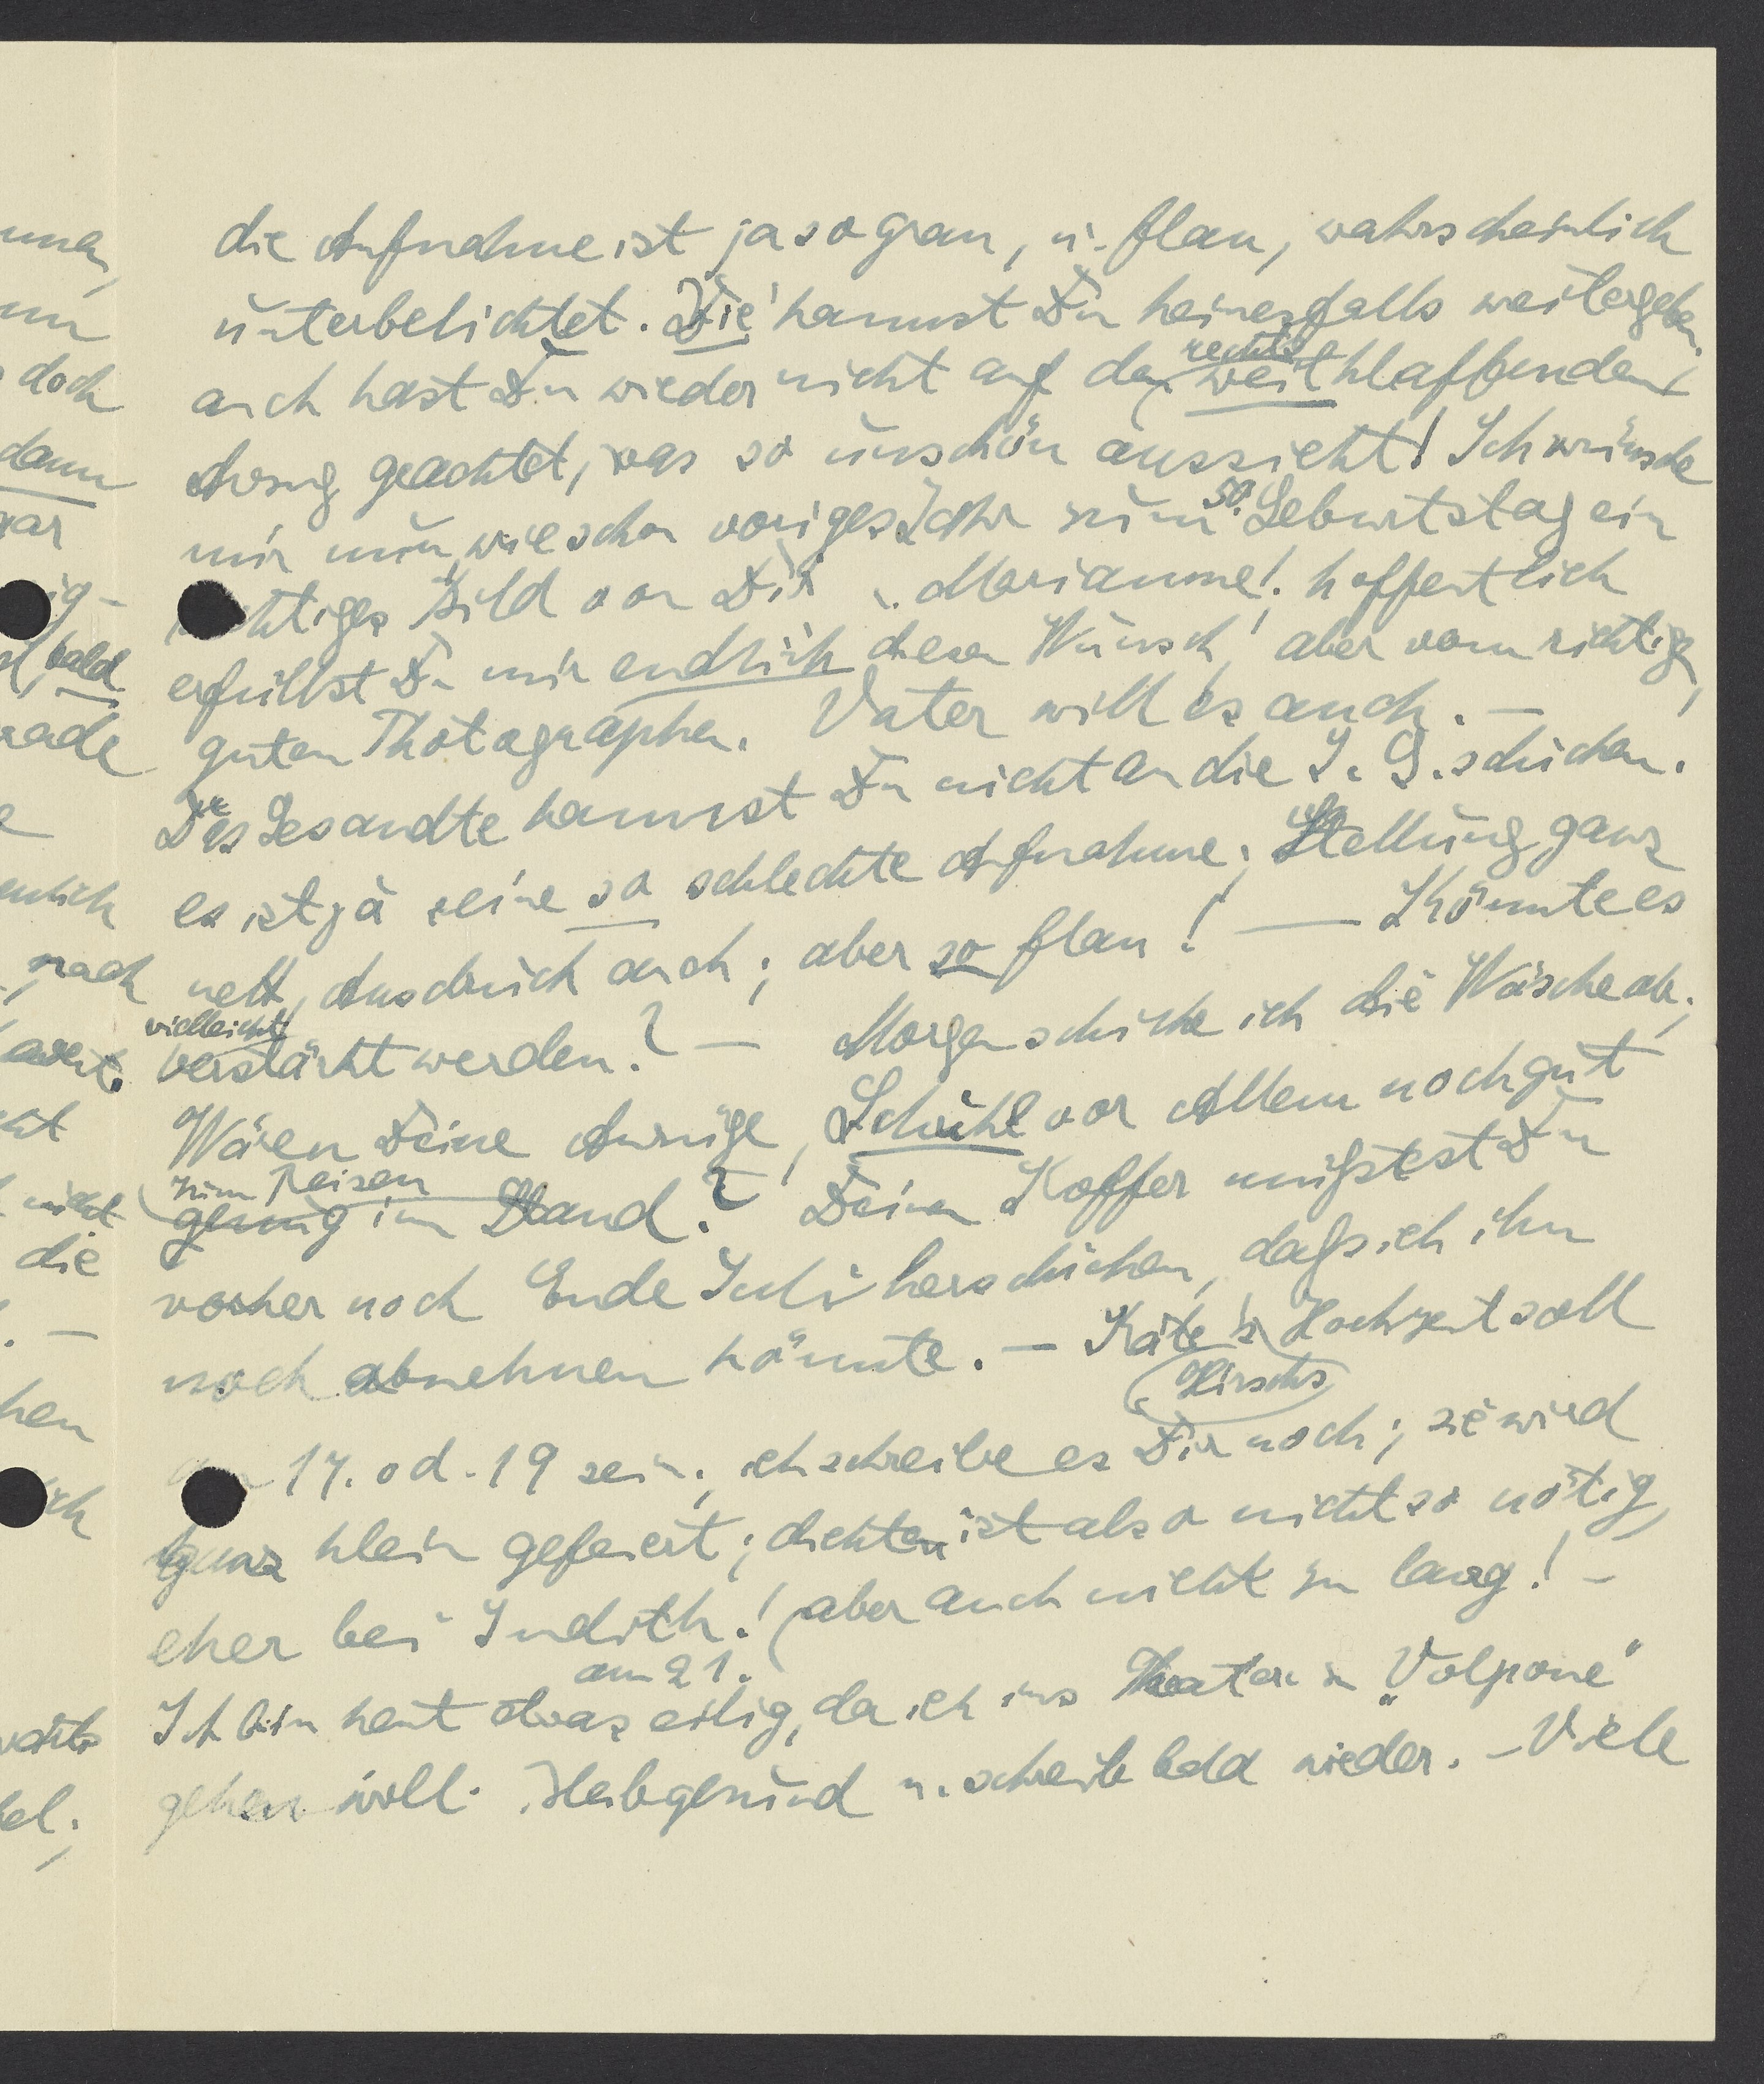 die Aufnahme ist ja so grau, u. flau, wahrscheinlich
unterbelichtet. Die kannst Du keinesfalls weitergeben,
auch hast Du wieder nicht auf den rechts weit klaffenden
Anzug geachtet, was so unschön aussieht! Ich wünsche
mir nun, wie schon voriges Jahr zum 50. Geburtstag ein
Bild von Dir u. Marianne! hoffentlich
erfüllst Du mir endlich diesen Wunsch! aber vom richtigen,
guten Photographen. Vater will es auch. —
Das Gesandte kannst Du nicht an die I. G. schicken.
es ist ja eine so schlechte Aufnahme; Stellung ganz
nett, Ausdruck auch; aber so flau! — Könnte es
vielleicht verstärkt werden? — Morgen schicke ich die Wäsche ab;
Wären Deine Anzüge, Schuhe vor Allem noch gut
zum Reisen
genug im Stand? Deinen Koffer müßtest Du
vorher noch Ende Juli herschicken, daß ich ihn
noch abnehmen könnte. — Käte's Hochzeit soll
(Hirschs)
am 17. od. 19 sein; ich schreibe es Dir noch; sie wird
ganz klein gefeiert; dichten ist also nicht so nötig,
eher bei Judith! (aber auch nicht zu lang! —
am 21.
Ich bin heut etwas eilig, da ich ins Theater in „Volpone"
gehen will. Bleib gesund u. schreib bald wieder. — Viele
doch
dann
war
bald
nach
nicht
die